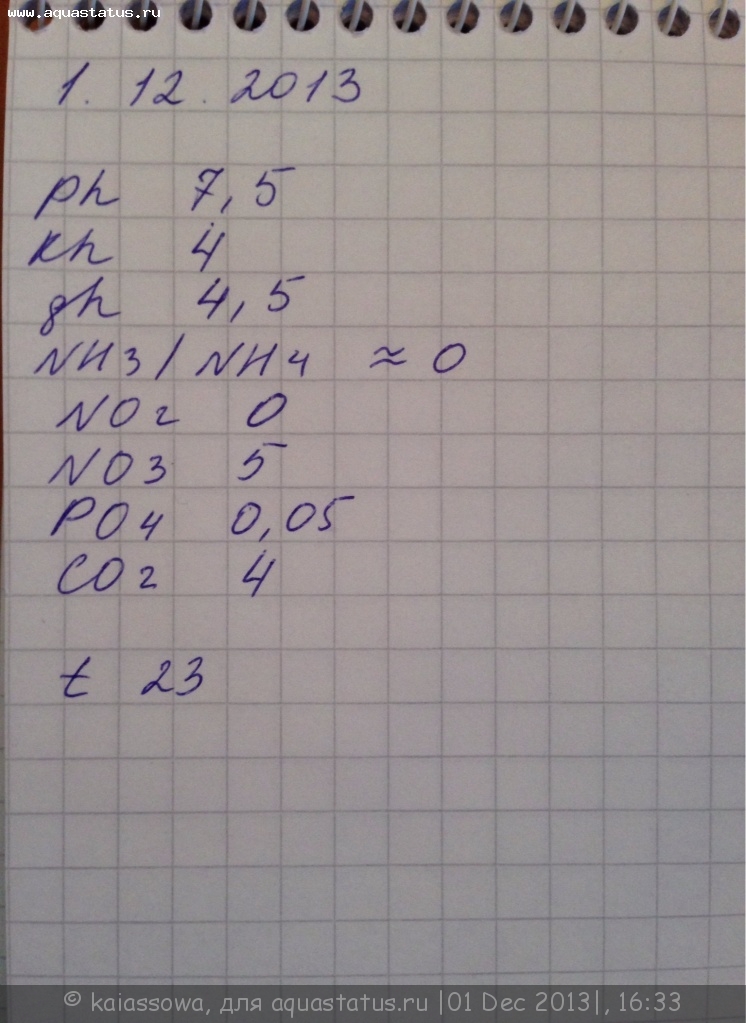 www.aquastatus.ru
1. 12. 2013
ph 7,5
kh 4
gh 4,5
NH3/NH4 ≈ 0
NO2 0
NO3 5
PO4 0,05
CO2 4
t 23
© kaiassowa, для aquastatus.ru |01 Dec 2013|, 16:33